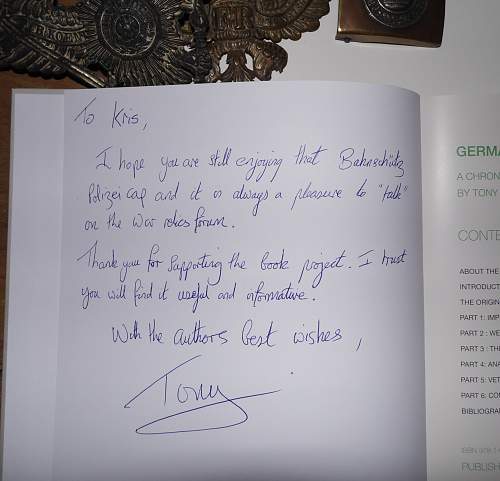 To Kris,
I hope you are still enjoying that Bahnschütz
Polizei cap and it is always a pleasure to "talk"
on the War relics forum.
Thank you for supporting the book project. I trust
you will find it useful and informative.
With the authors best wishes,
Tony
GERMA
A CHRON
BY TONY
CONTE
ABOUT THE
INTRODUCT
THE ORIGIN
PART 1: IMP
PART 2 : WE
PART 3 : THE
PART 4: ANA
PART 5: VET
PART 6: CON
BIBLIOGRA
ISBN 978-1-
PUBLISH